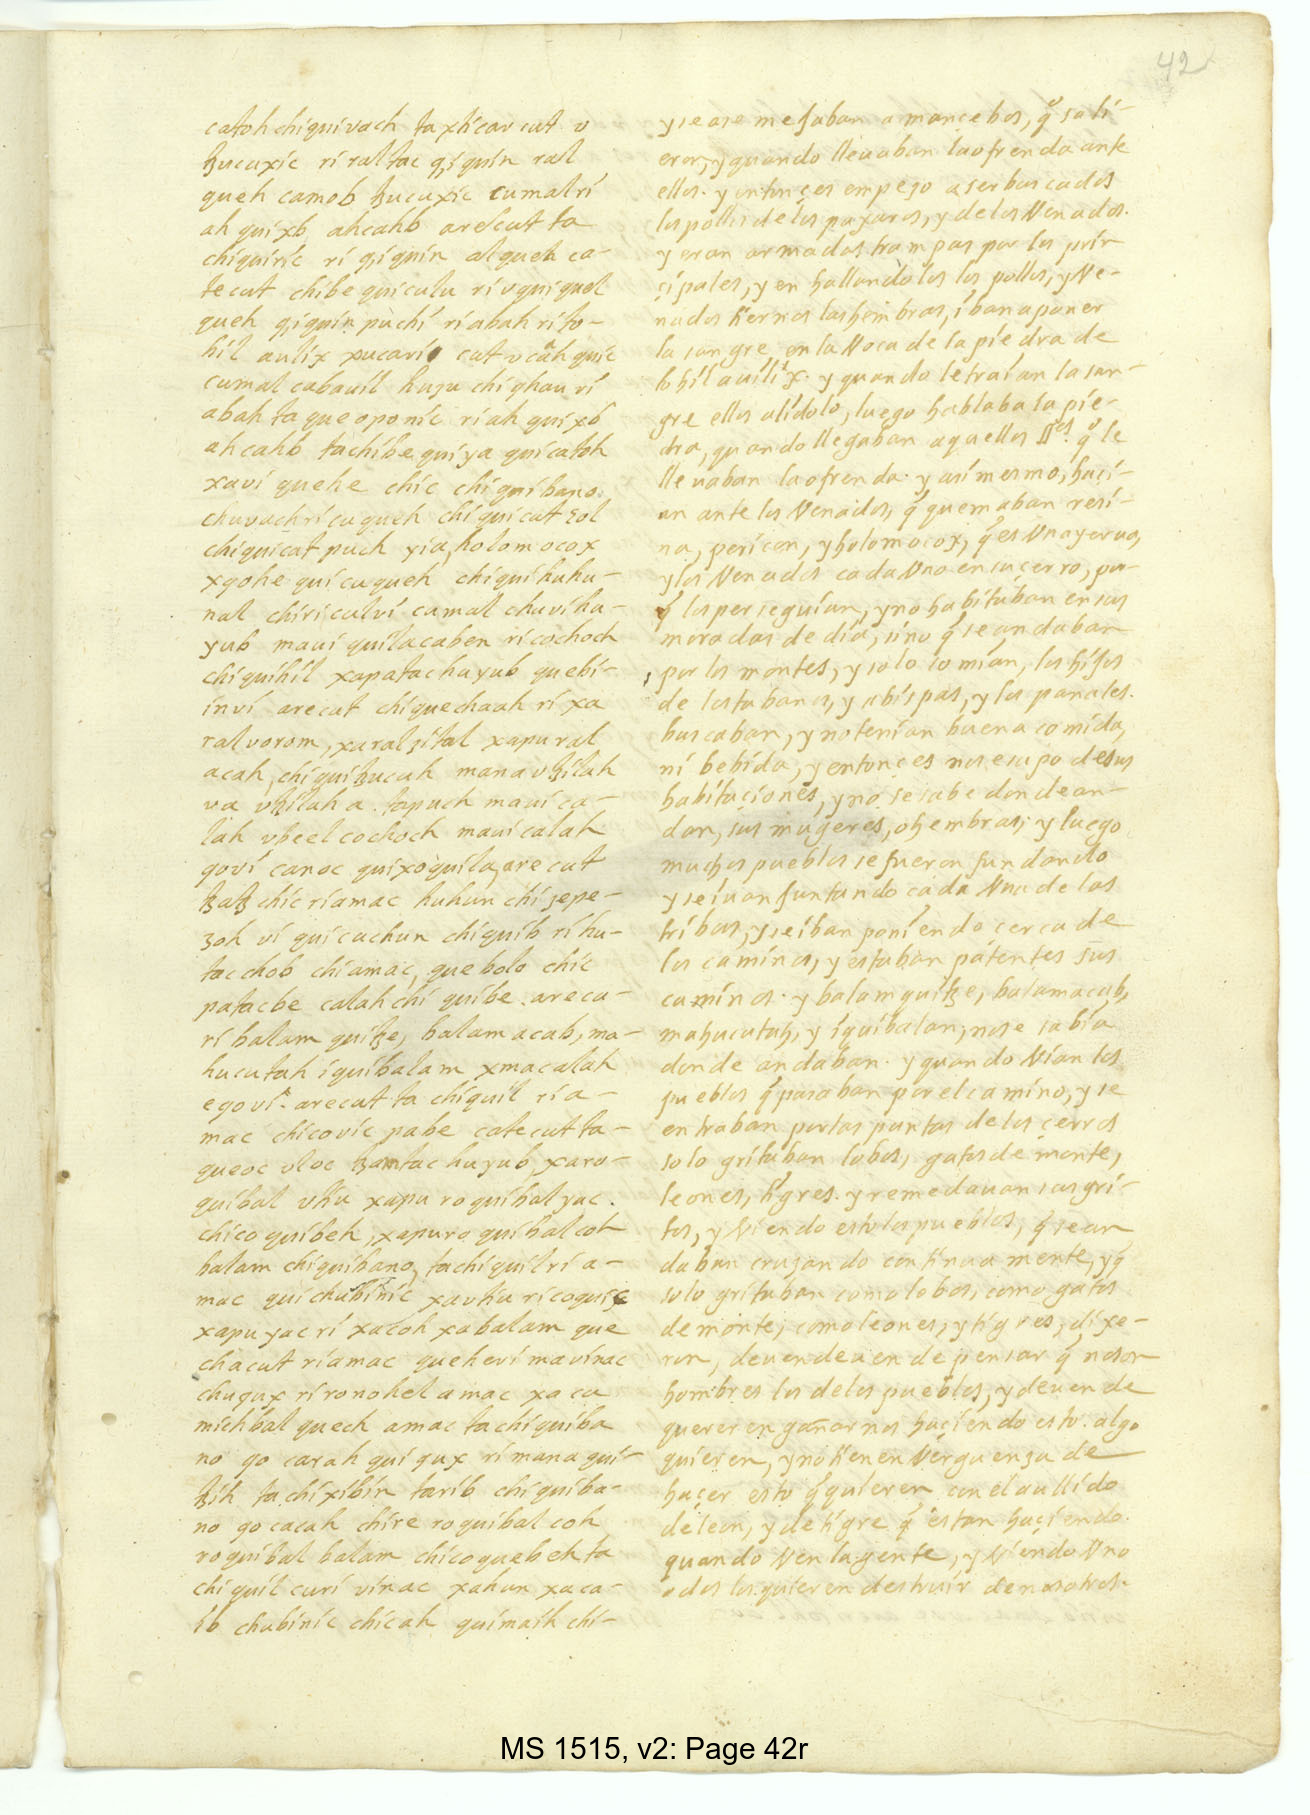 42
catoh chiquivach ta xticar cut v
tzucuxic ri raltac tziquin ral
queh camob tzucuxic cumal ri
ah quixb ahcahb arecut ta
chiquiric ri tziquin al queh ca-
te cut chibe quiculu ri v quiquel
queh tziquin puchi ri abah ri to-
hil auilix xucavi cut v cah quic
cumal cabauil huzu chi ghau ri
abah ta que oponic ri ah quixb
ahcahb ta chibe quiya quicatoh
xavi quehe chic chiquibano
chuvach ri cu queh chiquicat zol
chiquicat puch yia, holom ocox
xgohe qui cu queh chiquihuhu-
nal chiri calvi cumal chuvi hu-
yub mavi quilacaben ri cochoch
chiquihil xapatac huyub quebi-
invi arecut chiquechaah ri xa
ral vorom, xaral zital xapu ral
acah, chiquitzucuh mana vtzilah
va vtzilah a. tapuch mavi ca-
lah vbeel cochoch mavi calah
govi canoc quixoquila, are cut
tzatz chic ri amac huhun chi zepe-
zoh vi qui cuchun chiquib ri hu-
tac chob chi amac, que bolo chic
patac be calah chi quibe. arecu-
ri balam quitze, balam acab, ma-
hucutah iquibalam xmacalah
e govi. arecut ta chiquil ri a-
mac chicovic pabe catecut ta-
queoc uloc tzamtac huyub, xaro-
quibal vtiu xapu roquibal yac.
chico quibeh, xapu ro quibal coh
balam chiquibano, tachiquil ri a-
mac qui chubinic xavtiu ri coquic
xapu yac ri xacoh xabalam que
cha cut ri amac quehevi mavinac
chuqux ri ronohel amac xa ca
michbal quech amac ta chi quiba
no go carah qui qux ri mana qui-
tzih ta chixibin tarib chi quiba-
no go cacah chire roquibal coh
roquibal balam chico quebeh ta
chi quil curi vinac xahun xaca-
ib chubinic chicah quimaih chi-
y se ase mejaban a mançebos, q̃ sali-
eron, y quando lleuaban la ofrenda ante
ellos. y entonçes empezo a ser buscados
los pollos de los paxaros, y de los Venados.
y eran armadas trampas por los prin
çipales, y en hallandolos los pollos, y Ve-
nados tiernos las hembras, iban a poner
la sangre en la Voca de la piedra de
tohil auilix. y quando le traían la san-
gre ellos al idolo, luego hablaba la pie-
dra, quando llegaban aquellos q̃ le
lleuaban la ofrenda. y asi mesmo, haçi-
an ante los Venados, q̃ quemaban resi-
na, pericon, y holomocox, q̃ es Vna yerua,
y los Venados cada Vno en su çerro, por
q̃ los perseguían, y no habitaban en sus
moradas de día, sino q̃ se andaban
por los montes, y solo comían, los hijos
de los tabanos, y abispas, y los panales.
buscaban, y no tenían buena comida,
ni bebida, y entonçes no se supo de sus
habitaçiones, y no se sabe donde an-
dan, sus mugeres, o hembras, y luego
muchos pueblos se fueron fundando
y se iuan juntando cada Vna de las
tribus, y se iban poniendo cerca de
los caminos, y estaban patentes sus
caminos. y balamquitze, balamacab,
mahucutah, y iquibalan, no se sabía
donde andaban. y quando Vían los
pueblos q̃ pasaban por el camino, y se
entraban por las puntas de los çerros
solo gritaban lobos, gatos de monte,
leones, tigres. y remedauan sus gri-
tos, y Viendo esto los pueblos, q̃ se an
daban cruzando continuamente, y q̃
solo gritaban como lobos, como gatos
de monte, como leones, y tigres, dixe-
ron, deuen deuen de pensar q̃ no son
hombres los de los pueblos, y deuen de
querer engañarnos haçiendo esto. algo
quieren, y no tienen Verguenza de
haçer esto q̃ quieren con el aullido
de leon, y de tigre q̃ estan haçiendo.
quando Ven la gente, y Viendo Vno
o dos los quieren destruir de nosotros.
MS 1515, v2: Page 42r